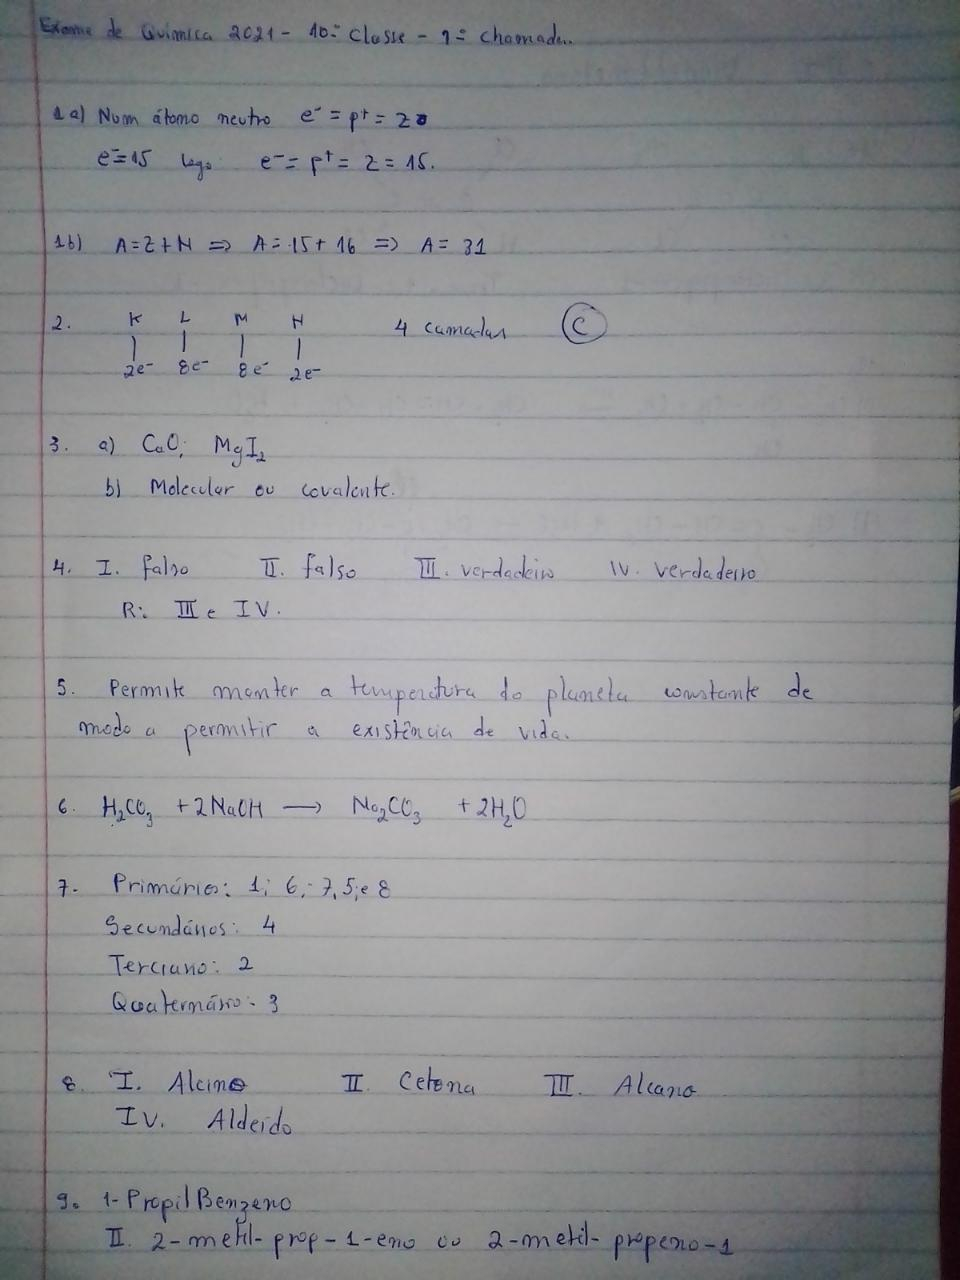 Exame de Química 2021 - 10ª Classe - 1ª Chamada.
1 a) Num átomo neutro e⁻ = p⁺ = Z
e⁻=15 logo e⁻ = p⁺ = Z = 15.
1b) A=Z+N => A=15+16 => A= 31
2. K L M N 4 camadas C
2e⁻ 8e⁻ 8e⁻ 2e⁻
3. a) CaO; MgI₂
b) Molecular ou covalente.
4. I. falso II. falso III. verdadeiro IV. verdadeiro
R: III e IV.
5. Permite manter a temperatura do planeta constante de
modo a permitir a existência de vida.
6. H₂CO₃ + 2NaOH → Na₂CO₃ + 2H₂O
7. Primários: 1; 6; 7, 5; e 8
Secundários: 4
Terciario: 2
Quaternário: 3
8. I. Alcino II. Cetona III. Alcano
IV. Aldeído
9. 1-PropilBenzeno
II. 2-metil-prop-1-eno ou 2-metil-propeno-1